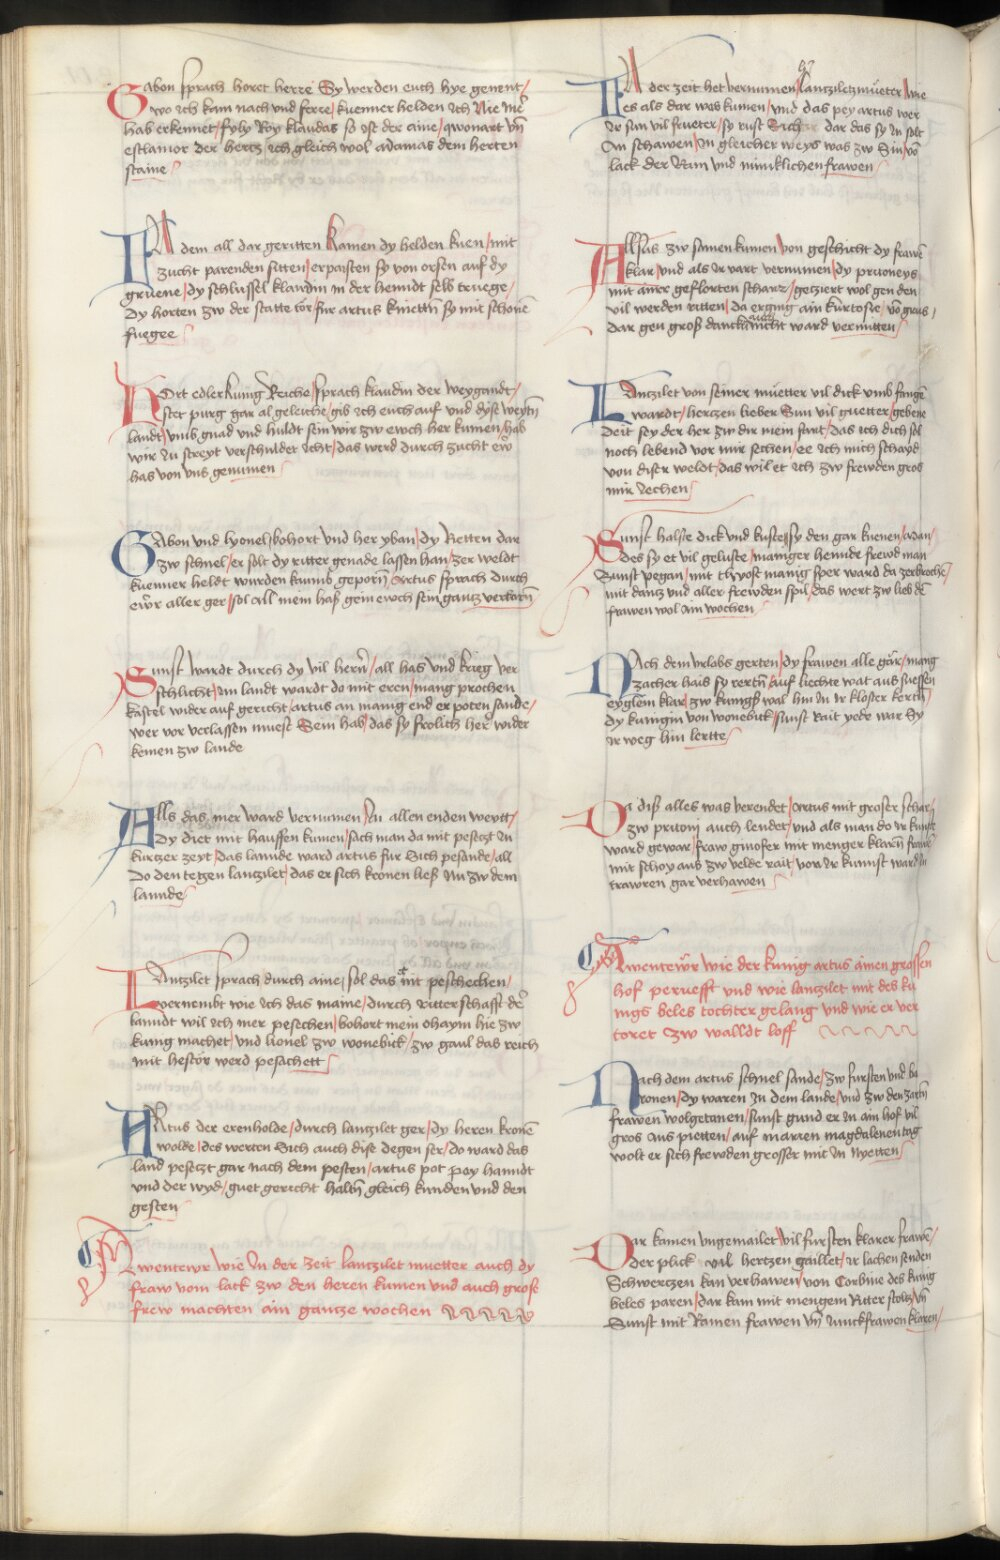 Gabon sprach horet herre Sy werden euch hye genent /
wo ich kam nach und ferre / kuenner helden ich Nie mer
hab erkennet / fyly Roy klaudas so ist der aine / qwonart vn̄
esclamor der hertz ich gleich wol adamas dem herten
staine /
IA dem all dar geritten kamen dy helden kuen / mit
zucht parenden sitten / erpaisten sy von orsen auf dy
gruene / dy schlussel klaudin in der henndt selb truege /
dy horten zw der statte tor / fur artus knietn̄ sy mit schone
fuegee
HOrt edler kunig Reiche / sprach klaudin der weygandt /
dyse weytn̄
landt / vmb gnad und huldt sein wir zw ewch her kumen / hab
wir zu streyt verschuldet icht / das werd durch zucht ew̄r
has von vns genumen
GAbon und lyonel / bohort und her yban / dy Retten dar
zw schnel / er solt dy ritter genade lassen han / zer weldt
kuenner heldt wurden kaumb geporn̄ / Artus sprach durch
ew̄r aller ger / sol all mein haß gein ewch sein gantz verkorn̄
Sunst wardt durch dy vil hern̄ / all has vnd krieg ver
schlicht / im landt wardt do mit eren / mang prochen
kastel wider auf gericht / artus an manig end er poten sande /
wer vor verlassen muest Sein hab / das sy frolich her wider
kemen zw lande
Alls das mer ward vernumen / In allen enden weytt /
Dy diet mit hauffen kumen / sach man da mit pesetzt in
kurtzer zeyt / das lannde ward artus fur Sich pesande / all
do den tetzen lanzilet / das er sich kronen ließ Im zw dem
lannde
LAntzilet sprach durch aine / sol das nit peschechen /
vernembt wie ich das maine / durch ritterschafft der
lanndt wil ich mer pesechen / bohort mein ohaym hie zw
kunig machet / vnd lionel zw wonebick / zw gaul das reich
mit hestor werd pesachett
ARtus der erenholde / durch lanzilet ger / dy heren krone
wolde / des werten Sich auch dise degen ser / do ward das
land pesetzt gar nach dem pesten / artus pot pey hanndt
und der wyd / guet gericht haltn̄ gleich kunden und den
gesten
Awentewr wie In der zeit lanzilet muetter auch dy
fraw vom lack zw den heren kumen und auch grose
frew machten ain gantze wochen
IA der zeit het vernumen / lantziletz mueter wie
es als dar was kumen / vnd das pey artus wer
Ir sun vil frueter / sy rust dar das sy In solt
An schawen / In gleicher weys was zw Sin vo
lack der Rain und minniklichen frawen
Allsus zw samen kumen / von geschicht dy frawe
klar / und als Ir vart vernumen / dy prironeys
mit ainer geflorten schare / getziert wol gen den
vil werden ritten / da erging ain kurtosie / vo graus /
dar gen groß danck auch nicht ward vermitten
LAntzilet von seiner mueter vil dick vmb fange
wardt / hertzen lieber Sun vil gueter / gebene
deit sey der her zw dir mein fart / das ich dich sol
noch lebend vor mir sechen / ee ich mich schayd
von diser weldt / das wil et ich zw frewden gros
mir Iechen
Sunst halste dick vnd kuste / sy den gar kuenen / adan /
des sy et vil geluste / maniger hennde frewd man
Sunst pegan / mit thyost manig sper ward da zerbroche /
mit dantz vnd aller frewden spil / das wert zw lieb de
frawen wol ain wochen
NAch dem vrlabs gerten / dy frawen alle gar / mang
zacher hais sy rertn̄ / auf liechte wat aus suessen
eyglein klar / zw kunigs wal hin in Ir kloster kertn̄ /
dy kunigin von wonebick / sunst Rait yede war Sy
Ir weg hin lertte
Da diß alles was verendet / Artus mit groser schar /
zw pritoni auch lendet / vnd als man do Ir kunst
ward gewar / fraw ginofer mit menger klarn̄ frawe
mit schoy aus zw velde rait / vor Ir kunnst ward In
trawren gar verhawen
Awentew̄r wie der kunig artus ainen grossen
hof peruefft vnd wie lanzilet mit des ku
nigs beles tochter gelang vnd wie er ver
toret zw walldt loff
Nach dem artus schnel sande / zw fursten vnd ba
ronen / dy waren In dem lande / vnd zw den zartn̄
frawen wolgetanen / sunst gund er In ain hof vil
gros aus pietten / auf marien magdalenen tag
wolt er sich frewden grosser mit In nyetten
Dar kamen vngemailet / vil fursten klarer frawe /
der plick vil hertzen gaillet / Ir lachen senden
Schwertzen kan verhawen / von Corbine des kunig
beles paren / dar kam mit mengem Ritter stoltz / vn̄
Sunst mit Ramen frawen vn̄ Iunckfrawen klaren /